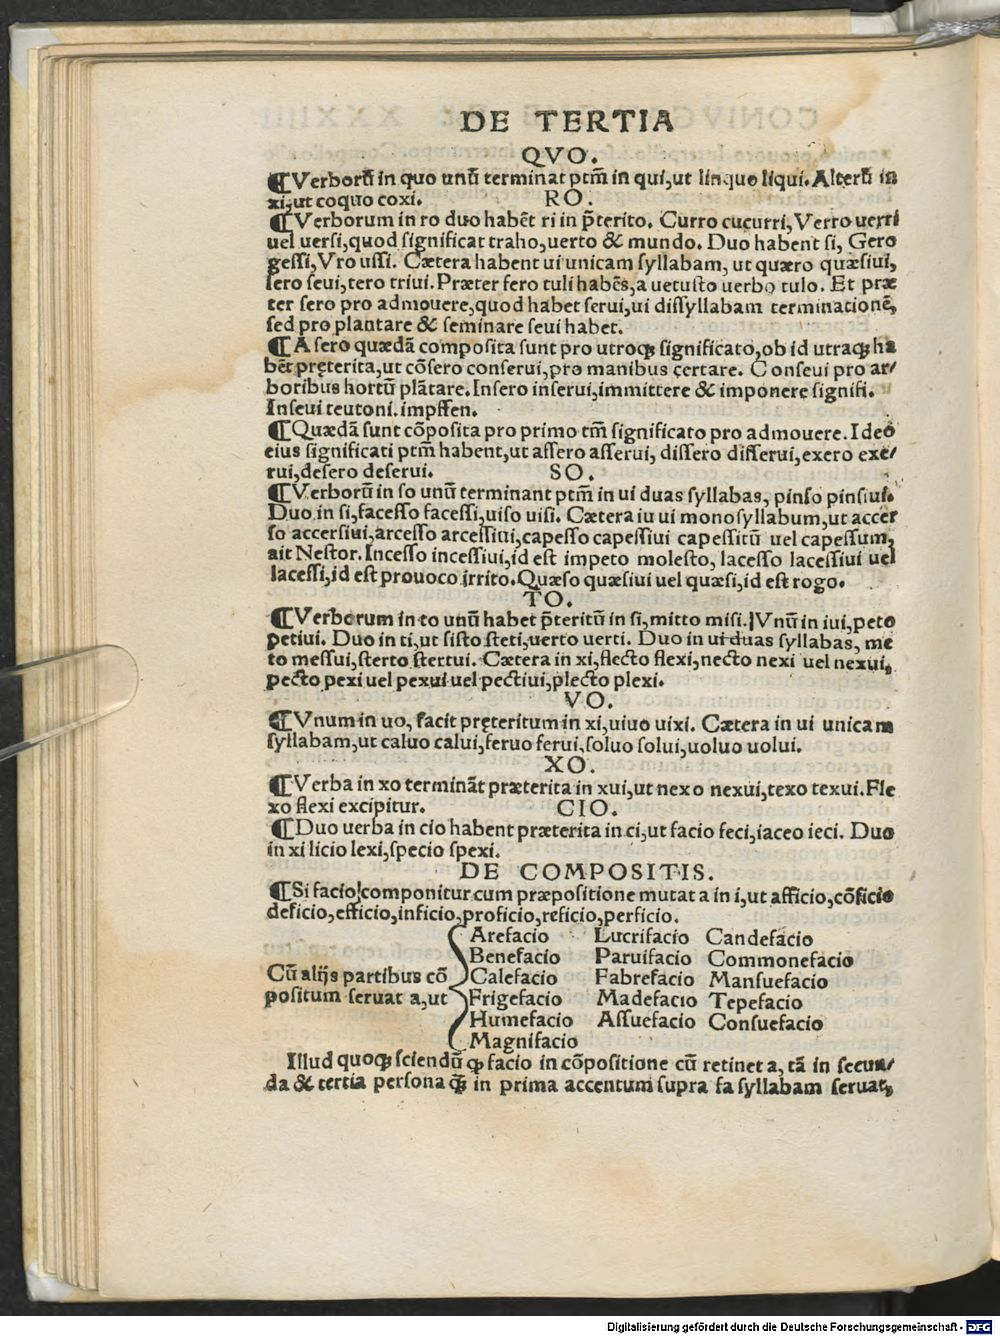 DE TERTIA
QVO.
¶Verborũ in quo unũ terminat ptm̃ in qui,ut linquo liqui. Alterũ in
xi,ut coquo coxi. RO.
¶Verborum in ro duo habẽt ri in p̃terito. Curro cucurri, Verro uerri
uel uersi,quod significat traho,uerto & mundo. Duo habent si, Gero
gessi, Vro ussi. Cætera habent ui unicam syllabam, ut quæro quæsiui,
sero seui,tero triui. Præter fero tuli habẽs,a uetusto uerbo tulo. Et præ
ter sero pro admouere,quod habet serui,ui dissyllabam terminationẽ,
sed pro plantare & seminare seui habet.
¶A sero quædã composita sunt pro utroqꝫ significato,ob id utraqꝫ ha
bẽt pręterita,ut cõsero conserui,pro manibus certare. Conseui pro ar/
boribus hortũ plãtare. Insero inserui,immittere & imponere signifi.
Inseui teutoni. impffen.
¶Quædã sunt cõposita pro primo tm̃ significato pro admouere. Ideo
eius significati ptm̃ habent,ut assero asserui, dissero disserui,exero exe/
rui,desero deserui. SO.
¶Verborũ in so unũ terminant ptm̃ in ui duas syllabas, pinso pinsiui.
Duo in si,facesso facessi,uiso uisi. Cætera iu ui monosyllabum,ut accer
so accersiui,arcesso arcessiui,capesso capessiui capessitũ uel capessum,
ait Nestor. Incesso incessiui,id est impeto molesto, lacesso lacessiui uel
lacessi,id est prouoco irrito. Quæso quæsiui uel quæsi,id est rogo.
TO.
¶Verborum in to unũ habet p̃teritũ in si,mitto misi. Vnũ in iui,peto
petiui. Duo in ti,ut sisto steti,uerto uerti. Duo in ui duas syllabas, me
to messui,sterto stertui. Cætera in xi,flecto flexi,necto nexi uel nexui,
pecto pexi uel pexui uel pectiui,plecto plexi.
VO.
¶Vnum in uo, facit pręteritum in xi,uiuo uixi. Cætera in ui unicam
syllabam,ut caluo calui,feruo ferui,soluo solui,uoluo uolui.
XO.
¶Verba in xo terminãt præterita in xui,ut nexo nexui,texo texui. Fle
xo flexi excipitur. CIO.
¶Duo uerba in cio habent præterita in ci,ut facio feci,iaceo ieci. Duo
in xi licio lexi,specio spexi.
DE COMPOSITIS.
¶Si facio componitur cum præpositione mutat a in i,ut afficio,cõficio
deficio,efficio,inficio,proficio,reficio,perficio.
Arefacio Lucrifacio Candefacio
Benefacio Paruifacio Commonefacio
Cũ alijs partibus cõ Calefacio Fabrefacio Mansuefacio
positum seruat a,ut Frigefacio Madefacio Tepefacio
Humefacio Assuefacio Consuefacio
Magnifacio
Illud quoqꝫ sciendũ ꝙ facio in cõpositione cũ retinet a, tã in secun/
da & tertia persona q̃ꝫ in prima accentum supra fa syllabam seruat,
Digitalisierung gefördert durch die Deutsche Forschungsgemeinschaft - DFG